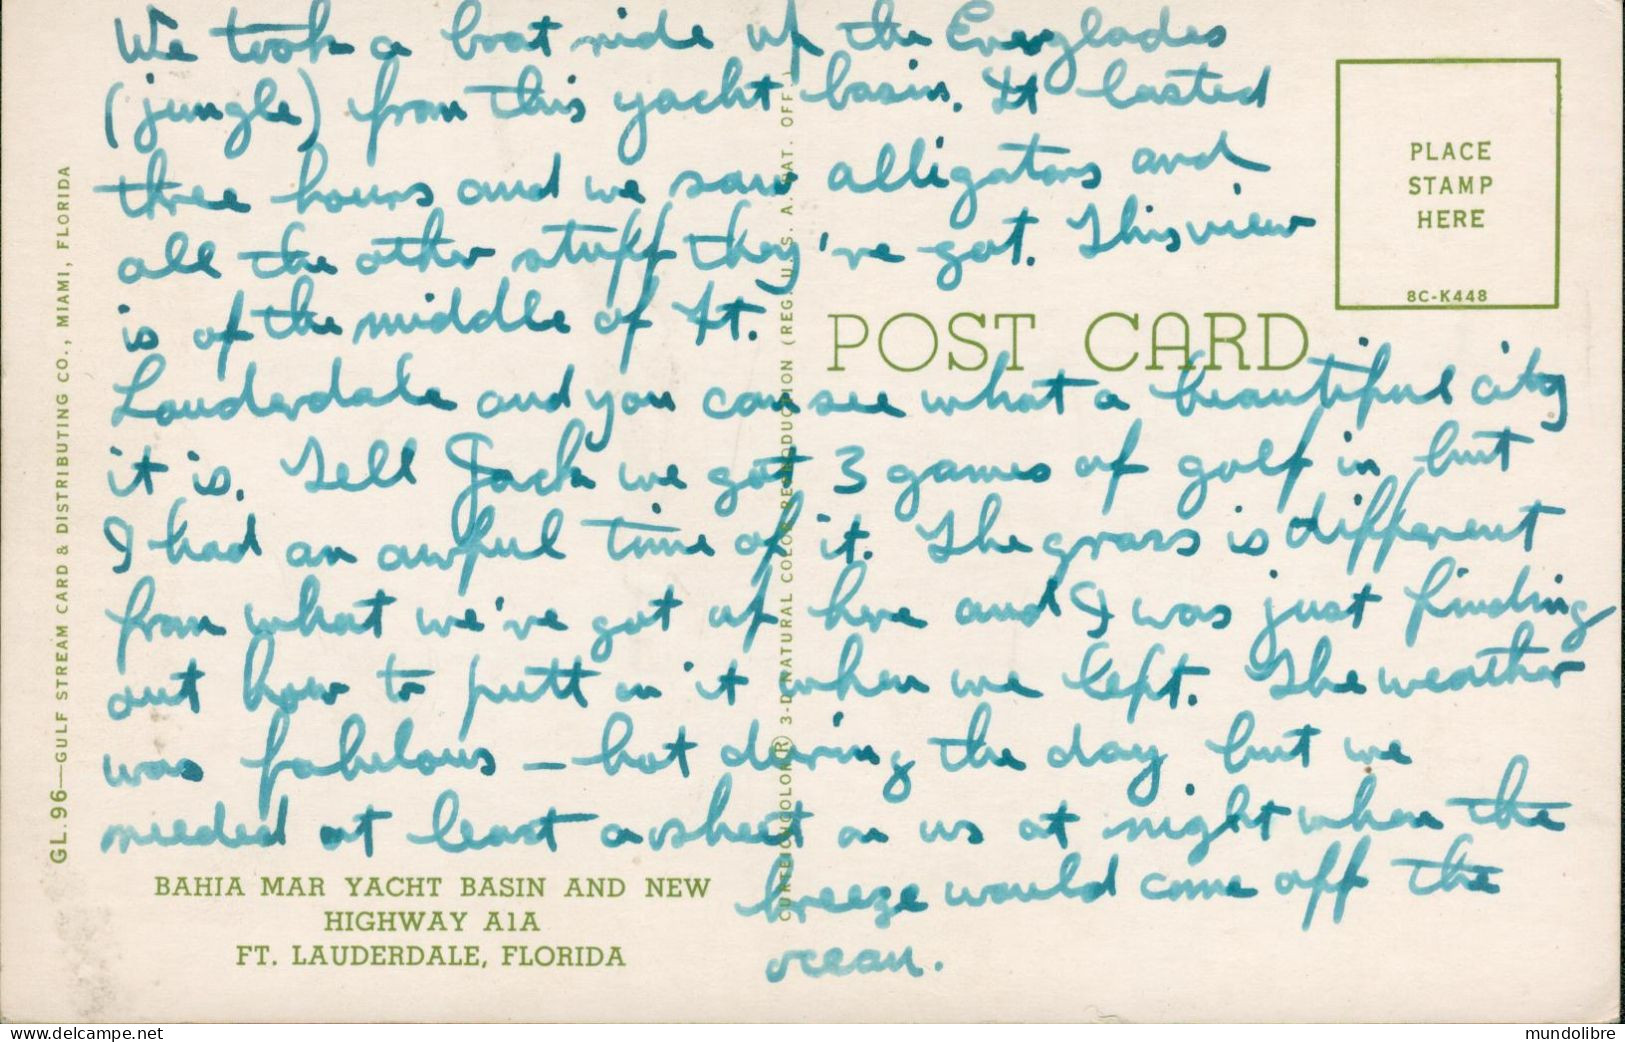 We took a boat ride up the Everglades
(jungle) from this yacht basin. It lasted
three hours and we saw alligators and
all the other stuff they've got. This view
is of the middle of Ft.
Lauderdale and you can see what a beautiful city
it is. Tell Jack we got 3 games of golf in but
I had an awful time of it. The grass is different
from what we've got up here and I was just finding
out how to putt on it when we left. The weather
was fabulous — hot during the day but we
needed at least a sheet on us at night when the
breeze would come off the
ocean.
POST CARD
PLACE
STAMP
HERE
8C-K448
BAHIA MAR YACHT BASIN AND NEW
HIGHWAY A1A
FT. LAUDERDALE, FLORIDA
GL.96—GULF STREAM CARD & DISTRIBUTING CO., MIAMI, FLORIDA
CURTEICHCOLOR® 3-D NATURAL COLOR REPRODUCTION (REG. U.S.A. PAT. OFF.)
delcampe.net
mundolibre